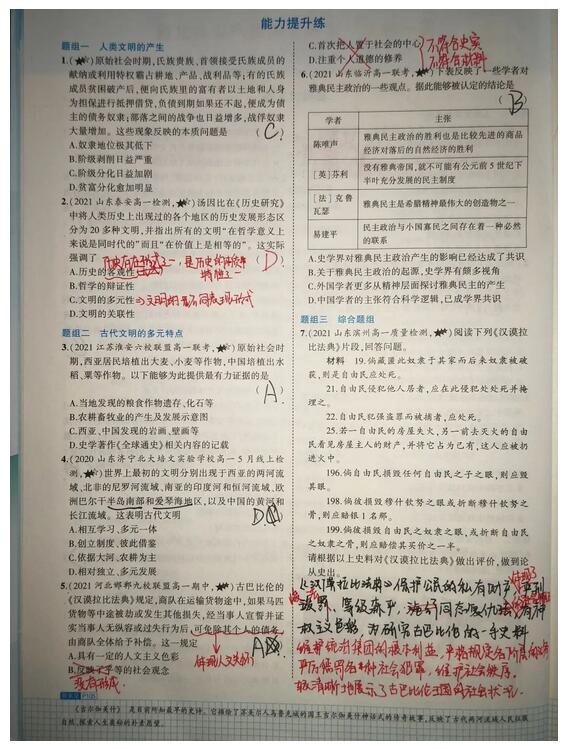 能力提升练
题组一 人类文明的产生
1.(★☆)原始社会时期,氏族贵族、首领接受氏族成员的
献纳或利用特权霸占耕地、产品、战利品等;有的氏族
成员贫困破产后,便向氏族里的富有者以土地和人身
为担保进行抵押借贷,负债到期如果还不起,便成为债
主的债务奴隶;部落之间的战争也日益增多,战俘奴隶
大量增加。这些现象反映的本质问题是 ( C )
A.奴隶地位极其低下
B.阶级剥削日益严重
C.阶级分化日益加剧
D.贫富分化愈加明显
2.(2021 山东泰安高一检测,★☆)汤因比在《历史研究》
中将人类历史上出现过的各个地区的历史发展形态区
分为 20 多种文明,并指出所有的文明“在哲学意义上
来说是同时代的”而且“在价值上是相等的”。这实际
强调了 ( D )
A.历史的客观性
B.哲学的辩证性
C.文明的多元性
D.文明的关联性
题组二 古代文明的多元特点
3.(2021 江苏淮安六校联盟高一联考,★☆)原始社会时
期,西亚居民培植出大麦、小麦等作物,中国培植出水
稻、粟等作物。以下能够为此提供最有力证据的是
( A )
A.当地发现的粮食作物遗存、化石等
B.农耕畜牧业的产生及发展示意图
C.西亚、中国发现的岩画、壁画等
D.史学著作《全球通史》相关内容的记载
4.(2020 山东济宁北大培文实验学校高一 5 月线上检
测,★☆)世界上最初的文明分别出现于西亚的两河流
域、北非的尼罗河流域、南亚的印度河和恒河流域、欧
洲巴尔干半岛南部和爱琴海地区,以及中国的黄河和
长江流域。这表明古代文明 ( D )
A.相互学习、多元一体
B.创立制度、彼此借鉴
C.依据大河、农耕为主
D.相对独立、多元发展
5.(2021 河北邯郸九校联盟高一期中,★☆)古巴比伦的
《汉谟拉比法典》规定,商队在运输货物途中,如果马匹
货物等中途被劫或发生其他损失,经当事人宣誓并证
实当事人无伪装或过失行为后,可免除其个人的债务,
由商队全体给予补偿。这一规定 ( A )
A.具有一定的人文主义色彩
B.反映平等的社会观念
C.首次把人置于社会的中心
D.注重个人道德的修养
不符合史实
6.(2021 山东临沂高一联考,★☆)下表反映了一些学者对
雅典民主政治的一些观点。据此能够被认定的结论是
( B )
学者 主张
陈唯声 雅典民主政治的胜利也是比较先进的商品
经济对落后的自然经济的胜利
[英]芬利 没有雅典帝国,就不可能有公元前 5 世纪下
半叶充分发展的民主制度
[法]克鲁
瓦瑟 雅典民主是希腊精神最伟大的创造物之一
易建平 民主政治与小国寡民之间存在着一种必然
的联系
A.史学界对雅典民主政治产生的影响已经达成了共识
B.关于雅典民主政治的起源,史学界有颇多视角
C.外国学者更多从精神层面探讨雅典民主的产生
D.中国学者的主张符合科学逻辑,已成学界共识
题组三 综合题组
7.(2021 山东滨州高一质量检测,★☆)阅读下列《汉谟拉
比法典》片段,回答问题。
材料 19.倘藏匿此奴隶于其家而后来奴隶被破
获,则是自由民应处死。
21.自由民侵犯他人居者,应在此侵犯处处死并掩
埋之。
22.自由民犯强盗罪而被捕者,应处死。
25.若一自由民的房屋失火,另一前去灭火的自由
民看见房屋主人的财产,并将它占为己有,这人应被扔
进火中。
196.倘自由民损毁任何自由民之子之眼,则应毁
其眼。
198.倘彼损毁穆什钦努之眼或折断穆什钦努之
骨,则应赔银 1 名那。
199.倘彼损毁自由民之奴隶之眼,或折断自由民
之奴隶之骨,则应赔偿其买价之一半。
请根据以上史料对《汉谟拉比法典》做出评价,做到论
从史出。
《汉谟拉比法典》保护公民的私有财产
《吉尔伽美什》 是目前所知最早的史诗。它描绘了苏美尔人乌鲁克城的国王吉尔伽美什神话式的传奇故事,反映了古代两河流域人民征服
自然、探索人生奥秘的朴素愿望。